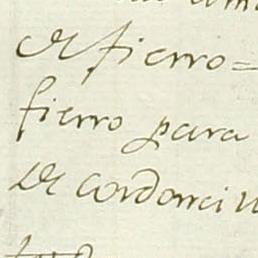 de fierro =
fierro para
de cordonci